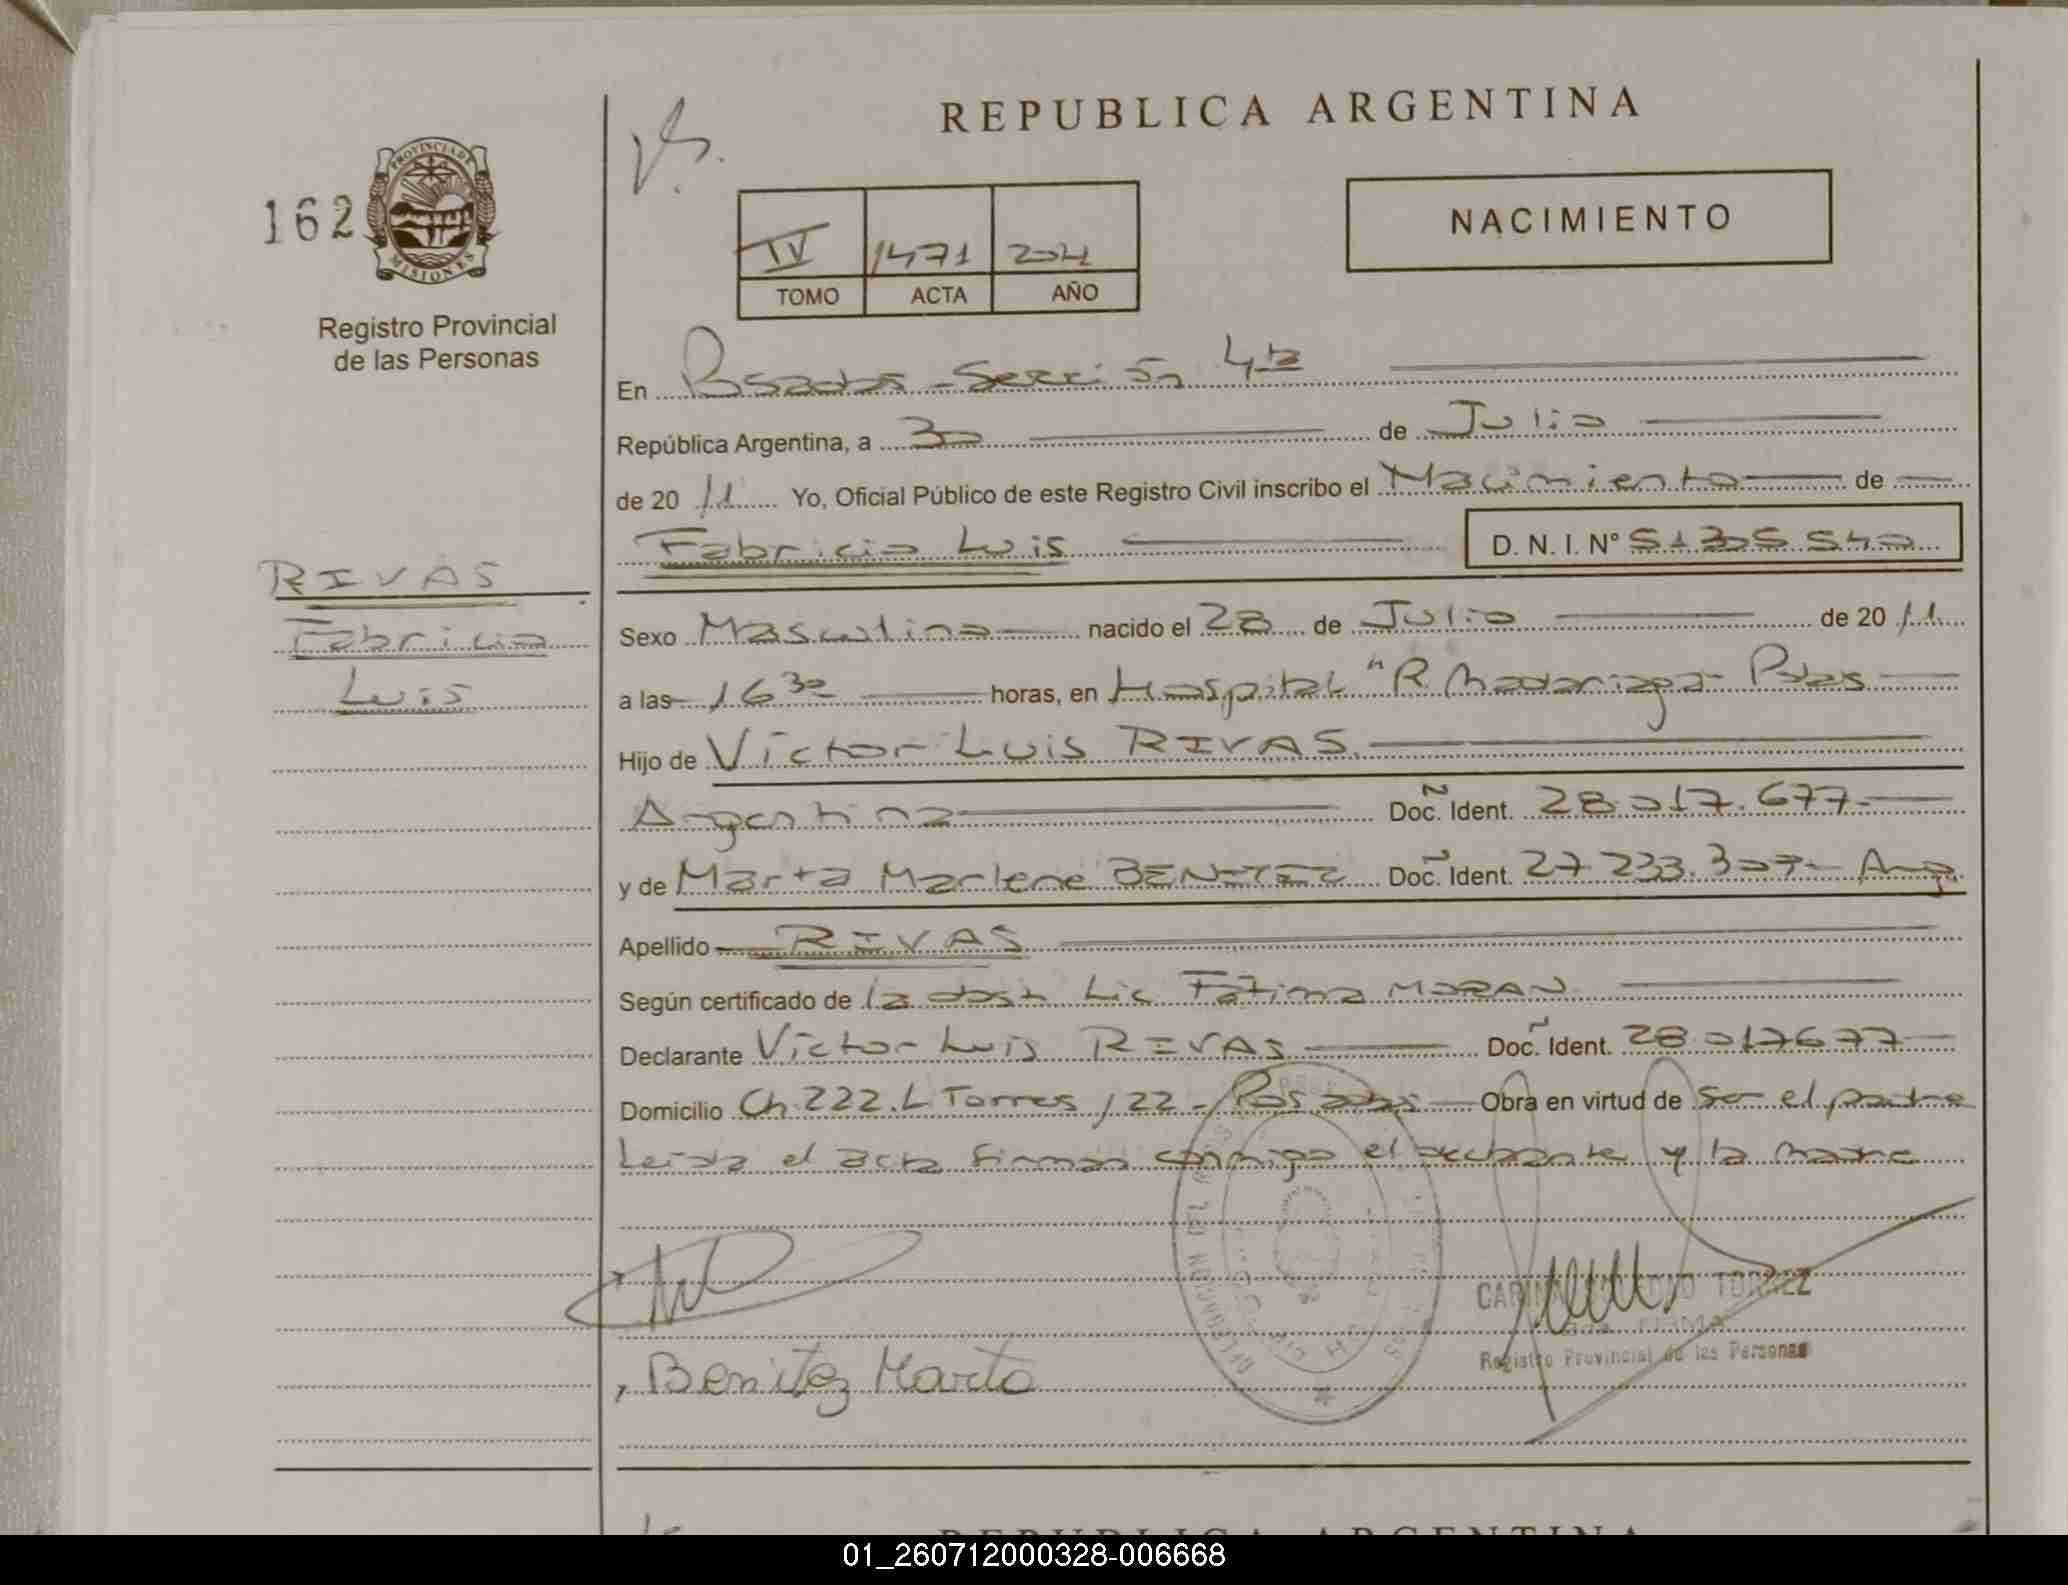 REPUBLICA ARGENTINA
162
PROVINCIA DE
MISIONES
Registro Provincial
de las Personas
NACIMIENTO
IV 1471 2011
TOMO ACTA AÑO
En Posadas - Sección 4ta
República Argentina, a 30 de Julio
de 20 11 Yo, Oficial Público de este Registro Civil inscribo el Nacimiento de
Fabricio Luis D. N. I. Nº 51.305.540
RIVAS
Fabricio
Luis
Sexo Masculino nacido el 28 de Julio de 20 11
a las 16 30 horas, en Hospital "R Madariaga" Pdas
Hijo de Víctor Luis RIVAS.
Argentina Doc. Ident. 28.017.677
y de Marta Marlene BENITEZ Doc. Ident. 27 233.307 Arg.
Apellido RIVAS
Según certificado de la obst Lic Fátima MORAN
Declarante Víctor Luis RIVAS Doc. Ident. 28 017677
Domicilio Ch 222. L Torres / 22 - Posadas Obra en virtud de ser el padre
Leída el acta firman conmigo el declarante y la madre
CARINA TORREZ
FIRMA
Registro Provincial de las Personas
DELEGACION DEL
Benitez Marta
REPUBLICA ARGENTINA
01_260712000328-006668